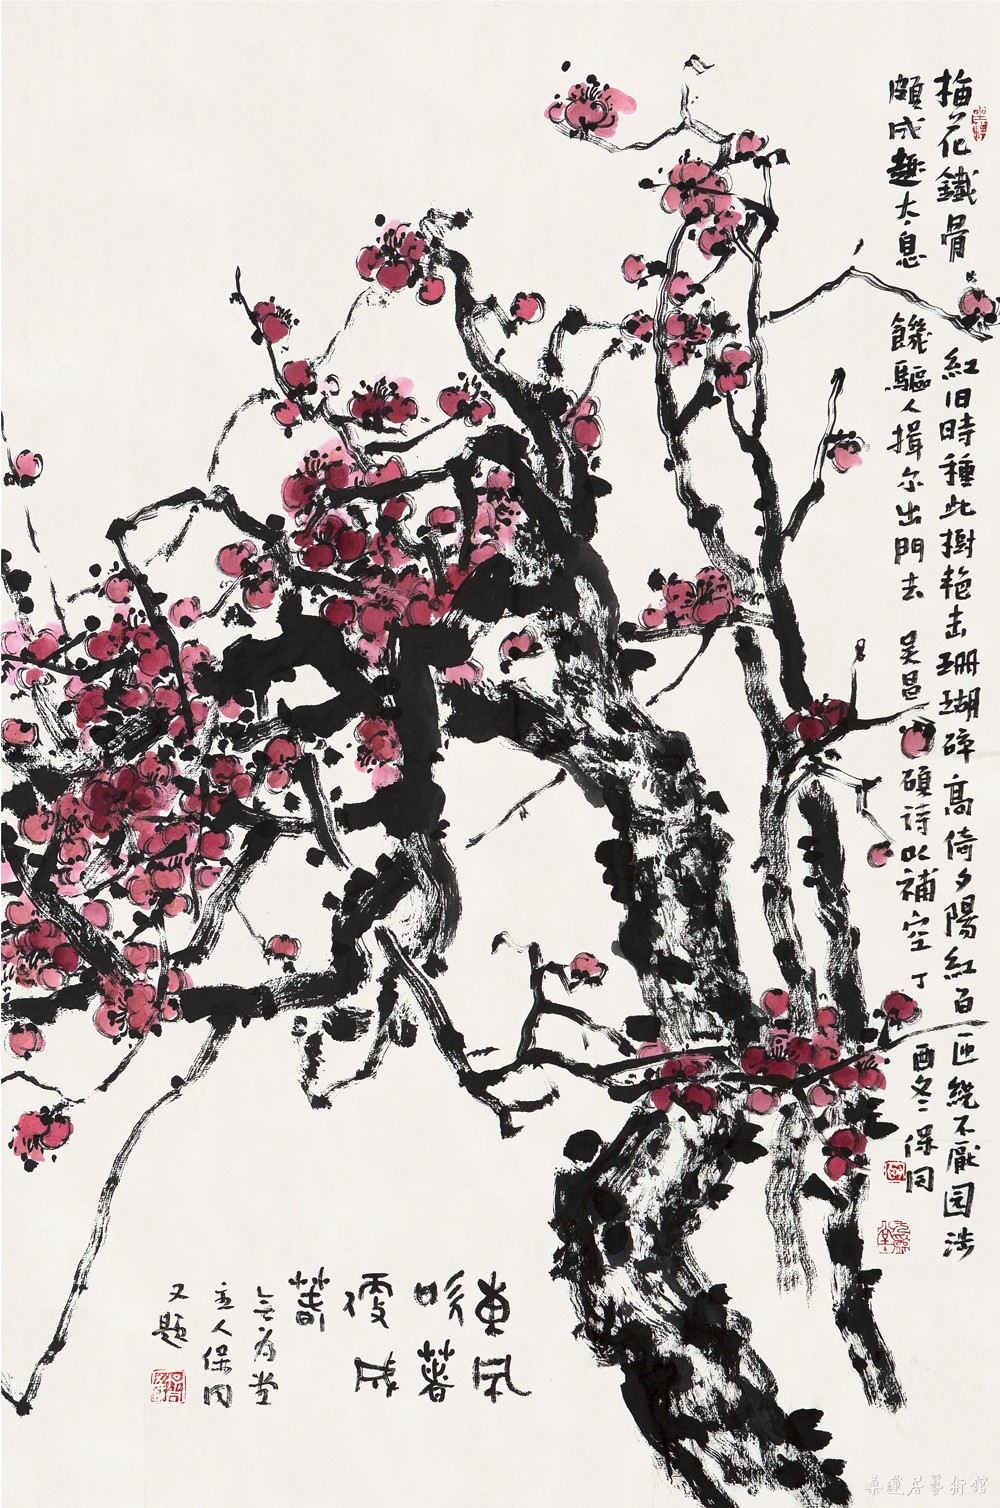 梅花鐵骨紅旧時種此樹艳击珊瑚碎高倚夕陽紅百匝绕不厭园涉
頗成趣太息饑驅人揖尔出門去吴昌碩詩以補空丁酉冬保同
東風
吹著
便成
春
无为堂
主人保同
又题
桑蓮居藝術館